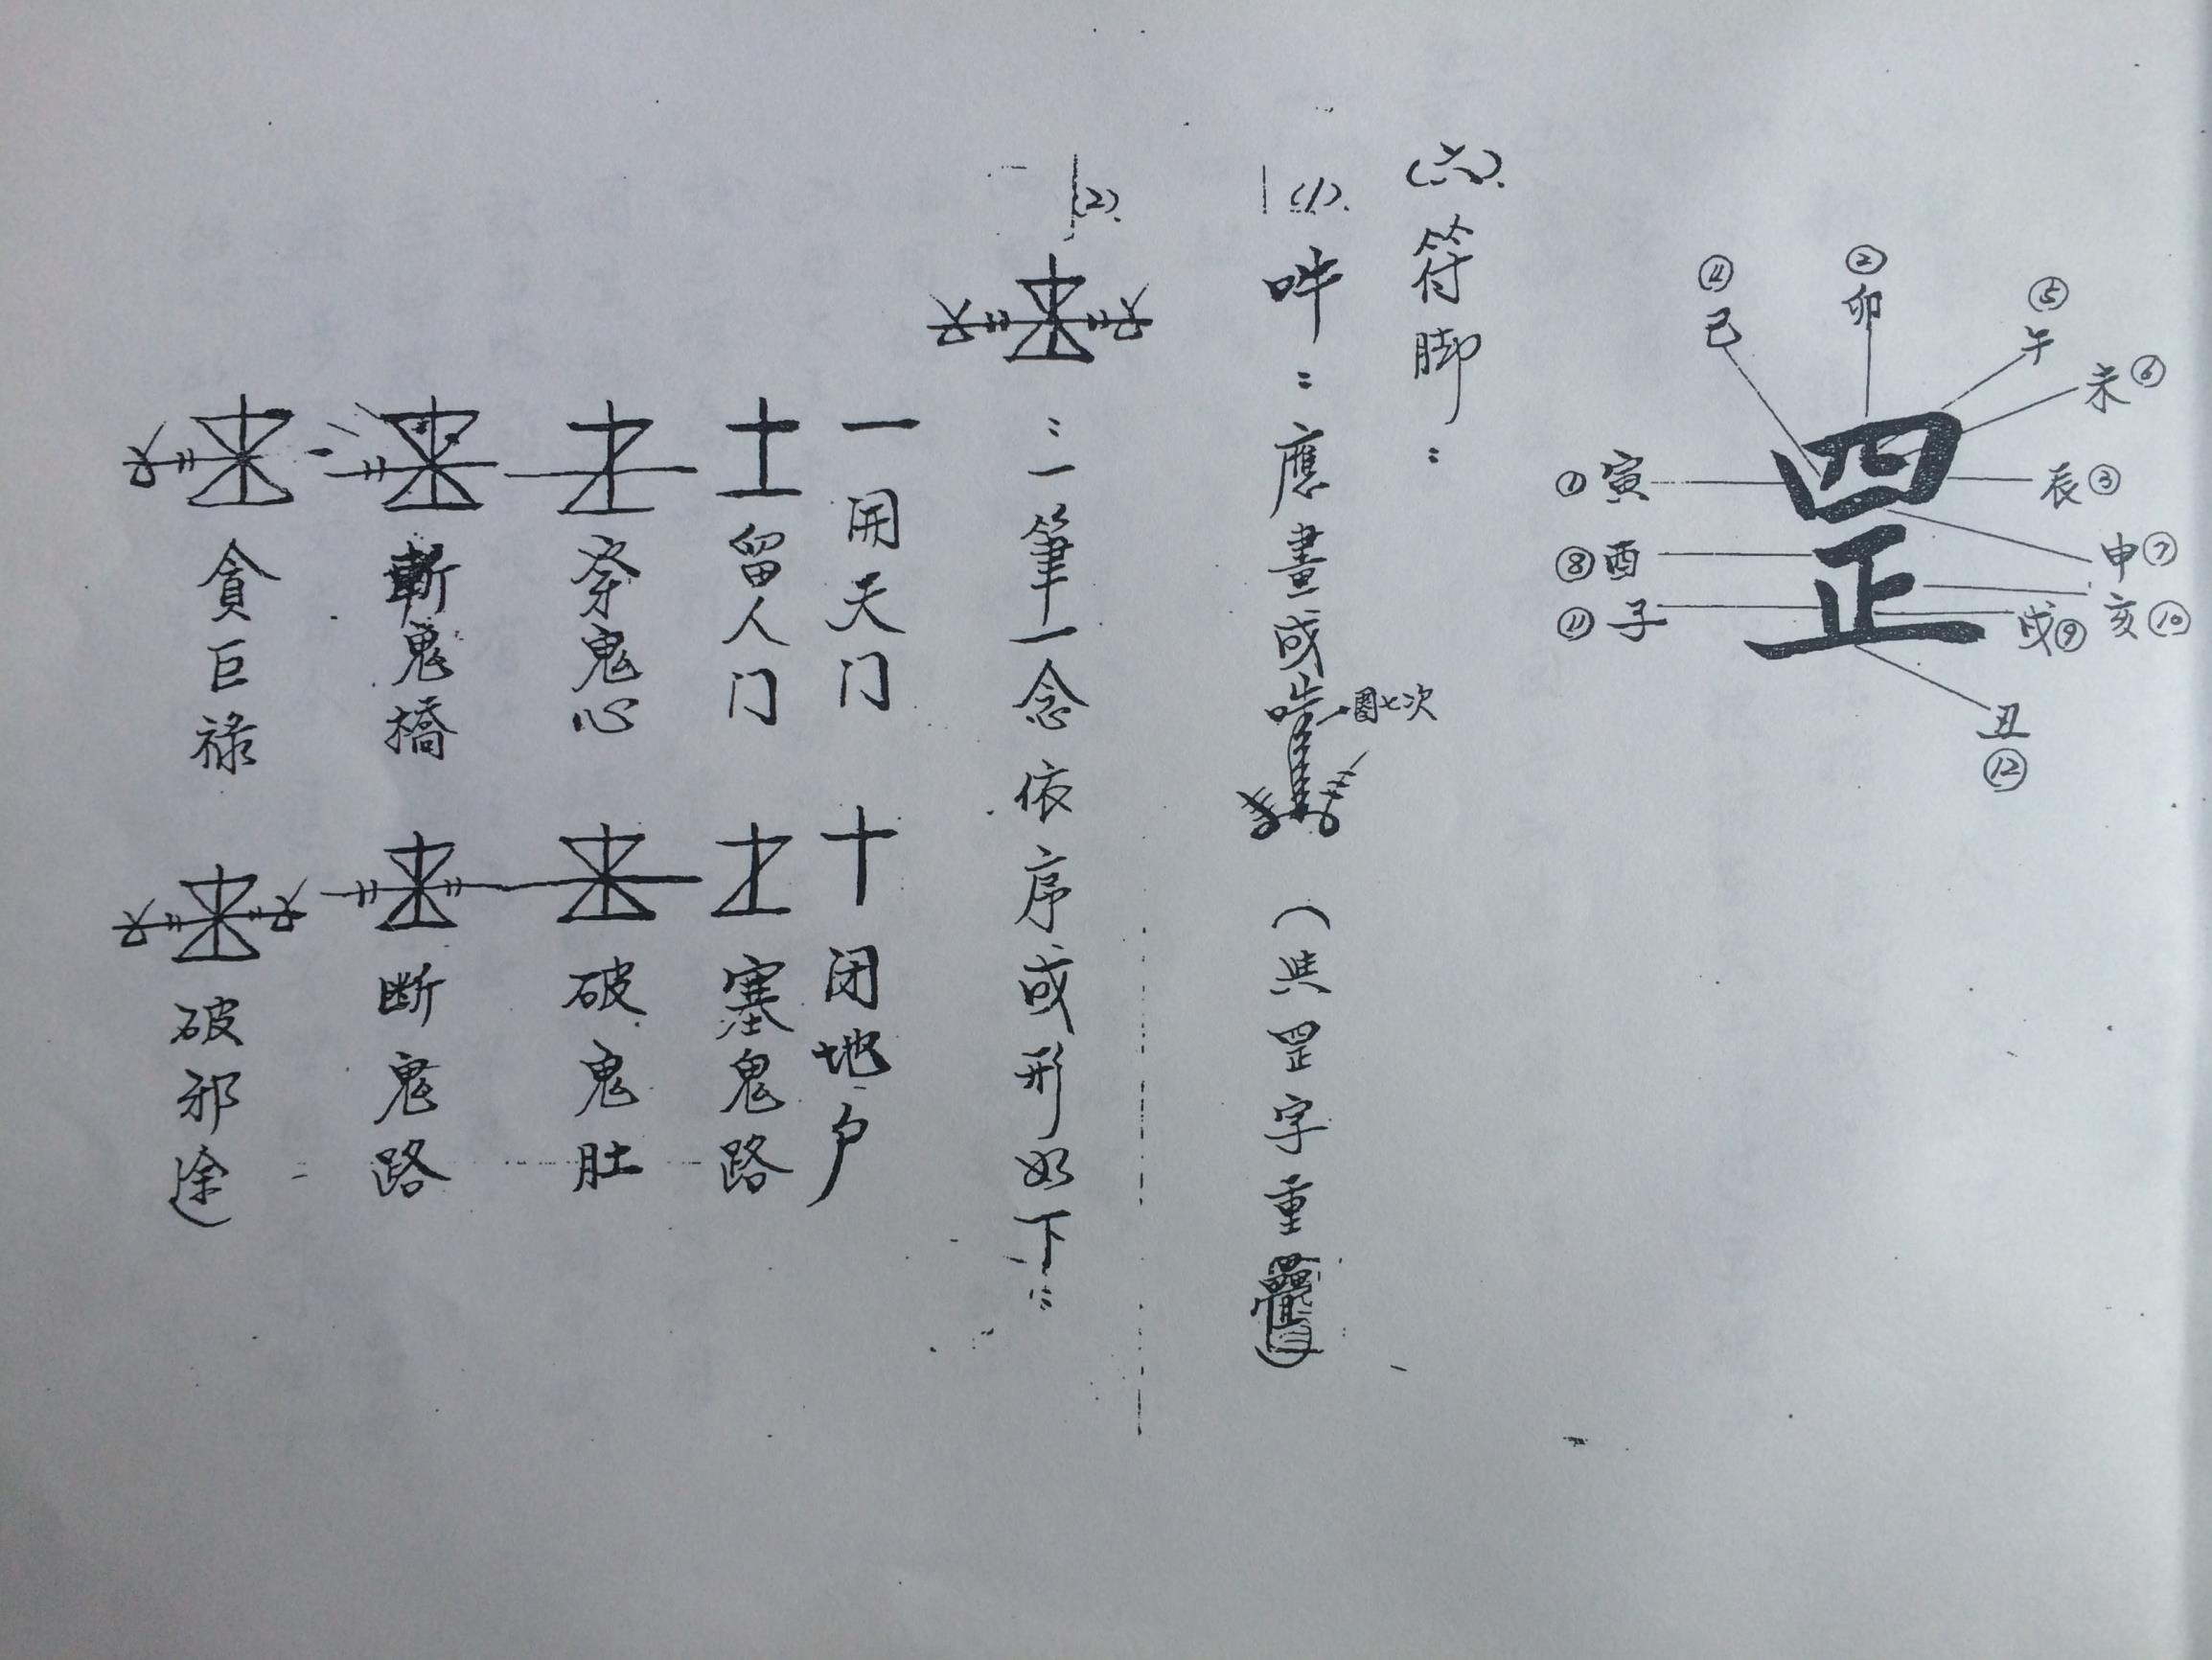 ④ 巳
② 卯
⑤ 午
未 ⑥
① 寅
辰 ③
罡
⑧ 酉
申 ⑦
⑪ 子
戌 ⑨
亥 ⑩
丑 ⑫
(六). 符脚:
(1). 吽: 應畫或 七次 (共罡字重疊)
(2). : 一筆一念依序或形如下:
一 開天门
十 闭地户
土 留人门
塞鬼路
穿鬼心
破鬼肚
斬鬼橋
断鬼路
貪巨禄
破邪途)